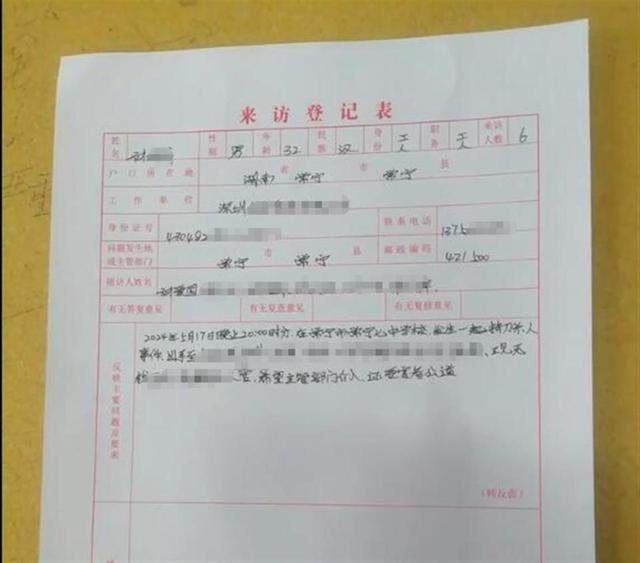 来访登记表
姓名 性别 男 年龄 32 民族 汉 身份 工人 职务 工人 来访人数 6
户口所在地 湖南 省 常宁 市 常宁 县
工作单位 深圳
身份证号 430482 联系电话 1375
问题发生地或主管部门 常宁 市 常宁 县 邮政编码 421500
随访人姓名
有无答复意见 有无复查意见 有无复核意见
反映主要问题及要求
2024年5月17日晚上20:00时分,在常宁市常宁七中学校,发生一起持刀杀人
事件,凶手
害,希望主管部门介入,还受害者公道
(转反面)